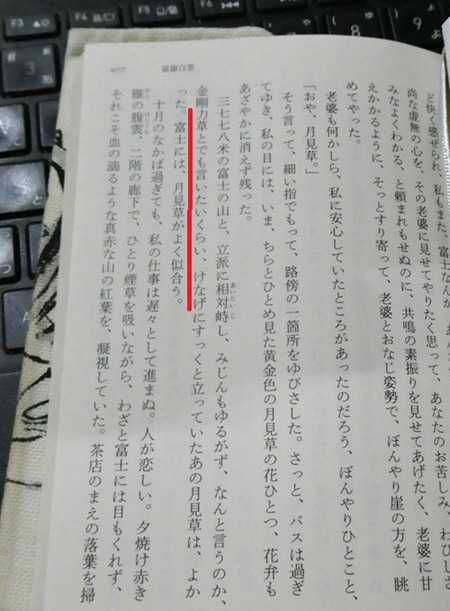 ど快く感ぜられ、私もまた、富士なんか、あなたのお苦しみ、わびしさ
尚な虚無の心を、その老婆に見せてやりたく思って、あなたのお苦しみ、わびしさ
みなよくわかる、と頼まれもせぬのに、共鳴の素振りを見せてあげたく、老婆に甘
えかかるように、そっとすり寄って、老婆とおなじ姿勢で、ぼんやり崖の方を、眺
めてやった。
老婆も何かしら、私に安心していたところがあったのだろう、ぼんやりひとこと、
「おや、月見草。」
そう言って、細い指でもって、路傍の一箇所をゆびさした。さっと、バスは過ぎ
てゆき、私の目には、いま、ちらとひとめ見た黄金色の月見草の花ひとつ、花弁も
あざやかに消えず残った。
三七七八米の富士の山と、立派に相対峙し、みじんもゆるがず、なんと言うのか、
金剛力草とでも言いたいくらい、けなげにすっくと立っていたあの月見草は、よか
った。富士には、月見草がよく似合う。
十月のなかば過ぎても、私の仕事は遅々として進まぬ。人が恋しい。夕焼け赤き
雁の腹雲、二階の廊下で、ひとり煙草を吸いながら、わざと富士には目もくれず、
それこそ血の滴るような真赤な山の紅葉を、凝視していた。茶店のまえの落葉を掃